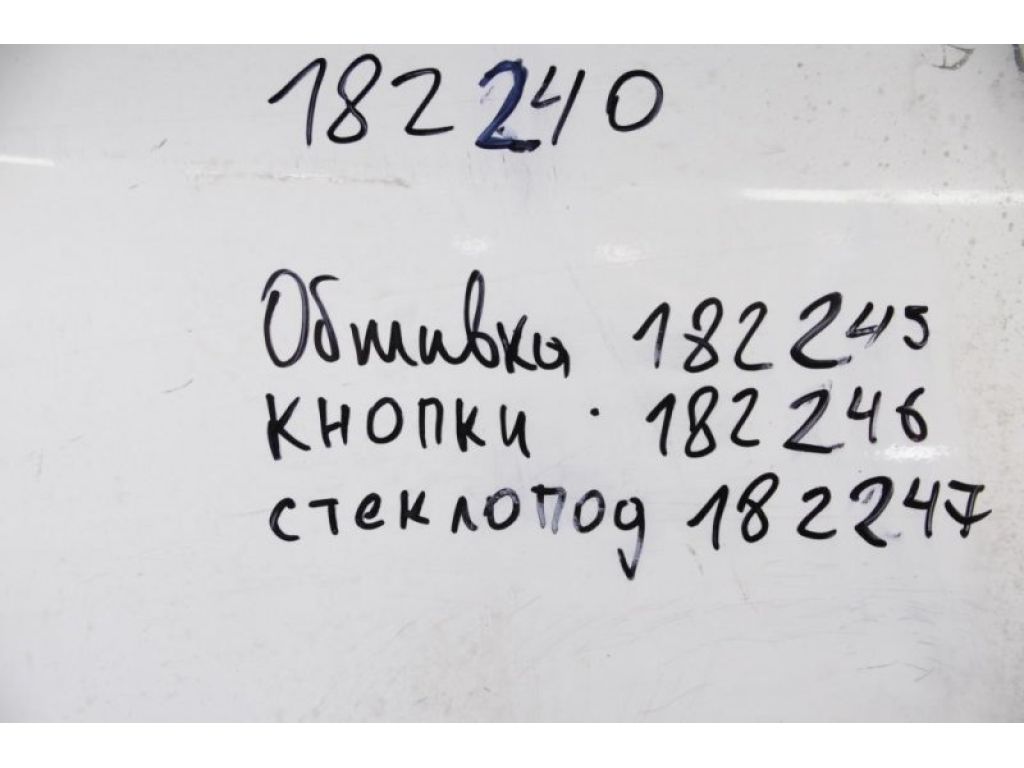 182240
Обшивка 182245
кнопки · 182246
стеклопод 182247